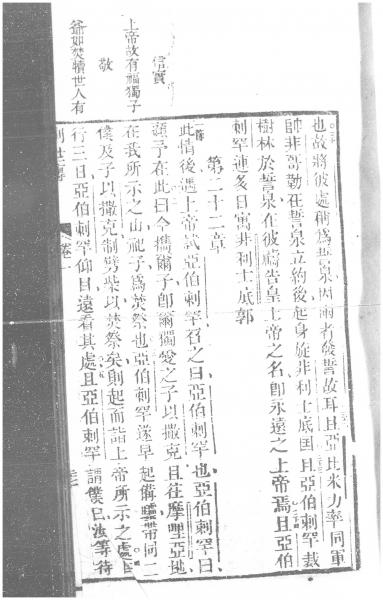 也故將彼處稱爲誓泉因兩者發誓故耳且亞比米力率同軍
帥非哥勒在誓泉立約後起身旋非利士底国且亞伯剌罕栽
樹林於誓泉在彼禱告皇上帝之名卽永遠之上帝焉且亞伯
剌罕連多日寓非利士底郭
第二十二章
一節
此情後遇上帝試亞伯剌罕召之曰亞伯剌罕也亞伯剌罕曰
予在此曰今攜爾子卽爾獨愛之子以撒克且往摩哩亞地
在我所示之山祀子爲焚祭也亞伯剌罕遂早起備驢帶同二
僕及子以撒克制劈柴以焚祭矣則起而詣上帝所示之處
行三日亞伯剌罕仰目遠看其處且亞伯剌罕謂僕曰汝等待
卷一
信實
上帝故有福獨子
敬
爺如焚犢世人有